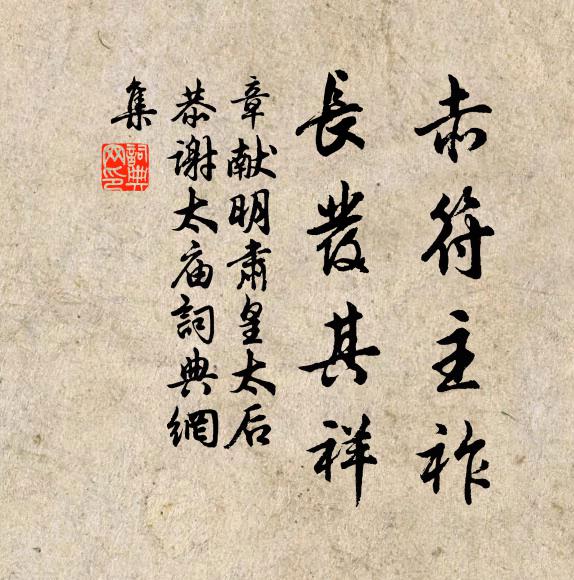 赤符主祚
長發其祥
章献明肅皇太后
恭谢太庙詞典網
集
詞典
网印